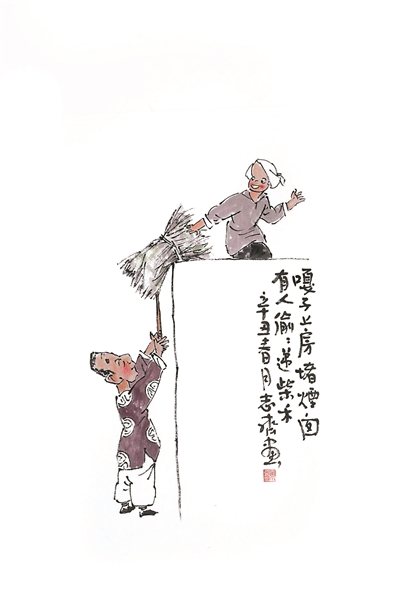 嘎子上房堵烟囱
有人偷:递柴禾
辛丑春月志齐画